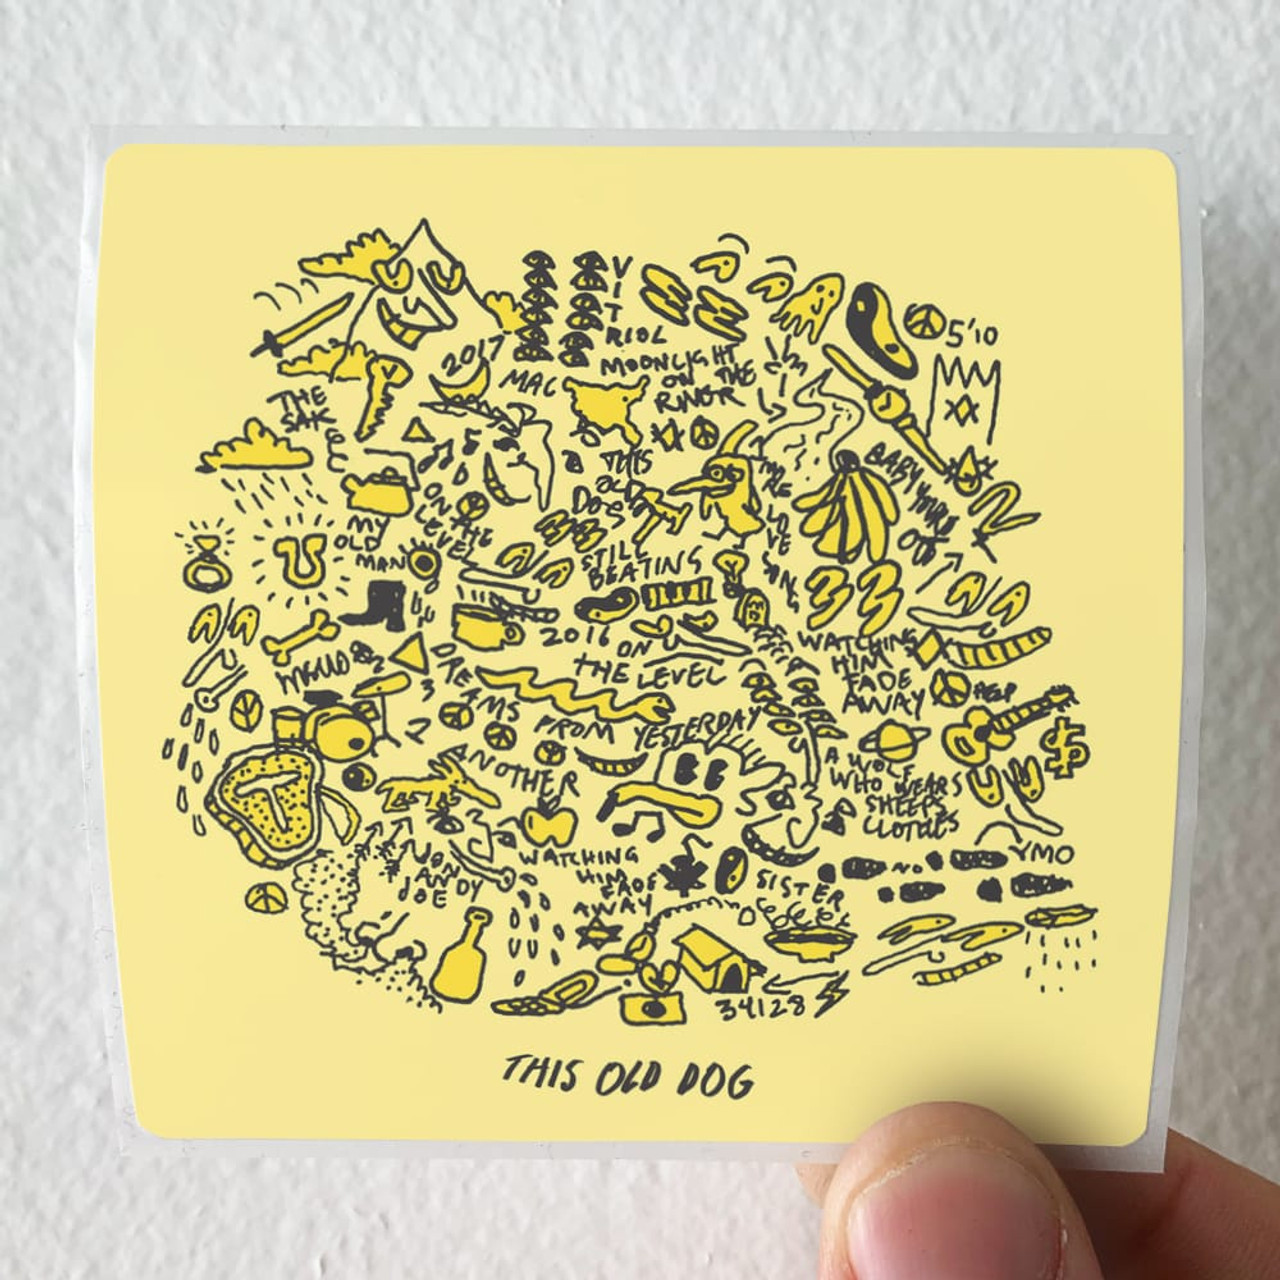 V
I
T
RIOL
5'10
2017
MAC
MOONLIGHT
ON THE
RIVER
THE
SAK
THIS
OLD
DOG
BABY YOU'RE
OUT
ONE
LOVE
ON THE
LEVEL
MY
OLD
MAN
STILL
BEATING
2016
ON
THE LEVEL
WATCHING
HIM
FADE
AWAY
DREAMS
FROM YESTERDAY
3
2
ANOTHER
A WOLF
WHO WEARS
SHEEPS
CLOTHES
JON
ANDY
JOE
WATCHING
HIM
FADE
AWAY
NO
YMO
SISTER
34128
THIS OLD DOG